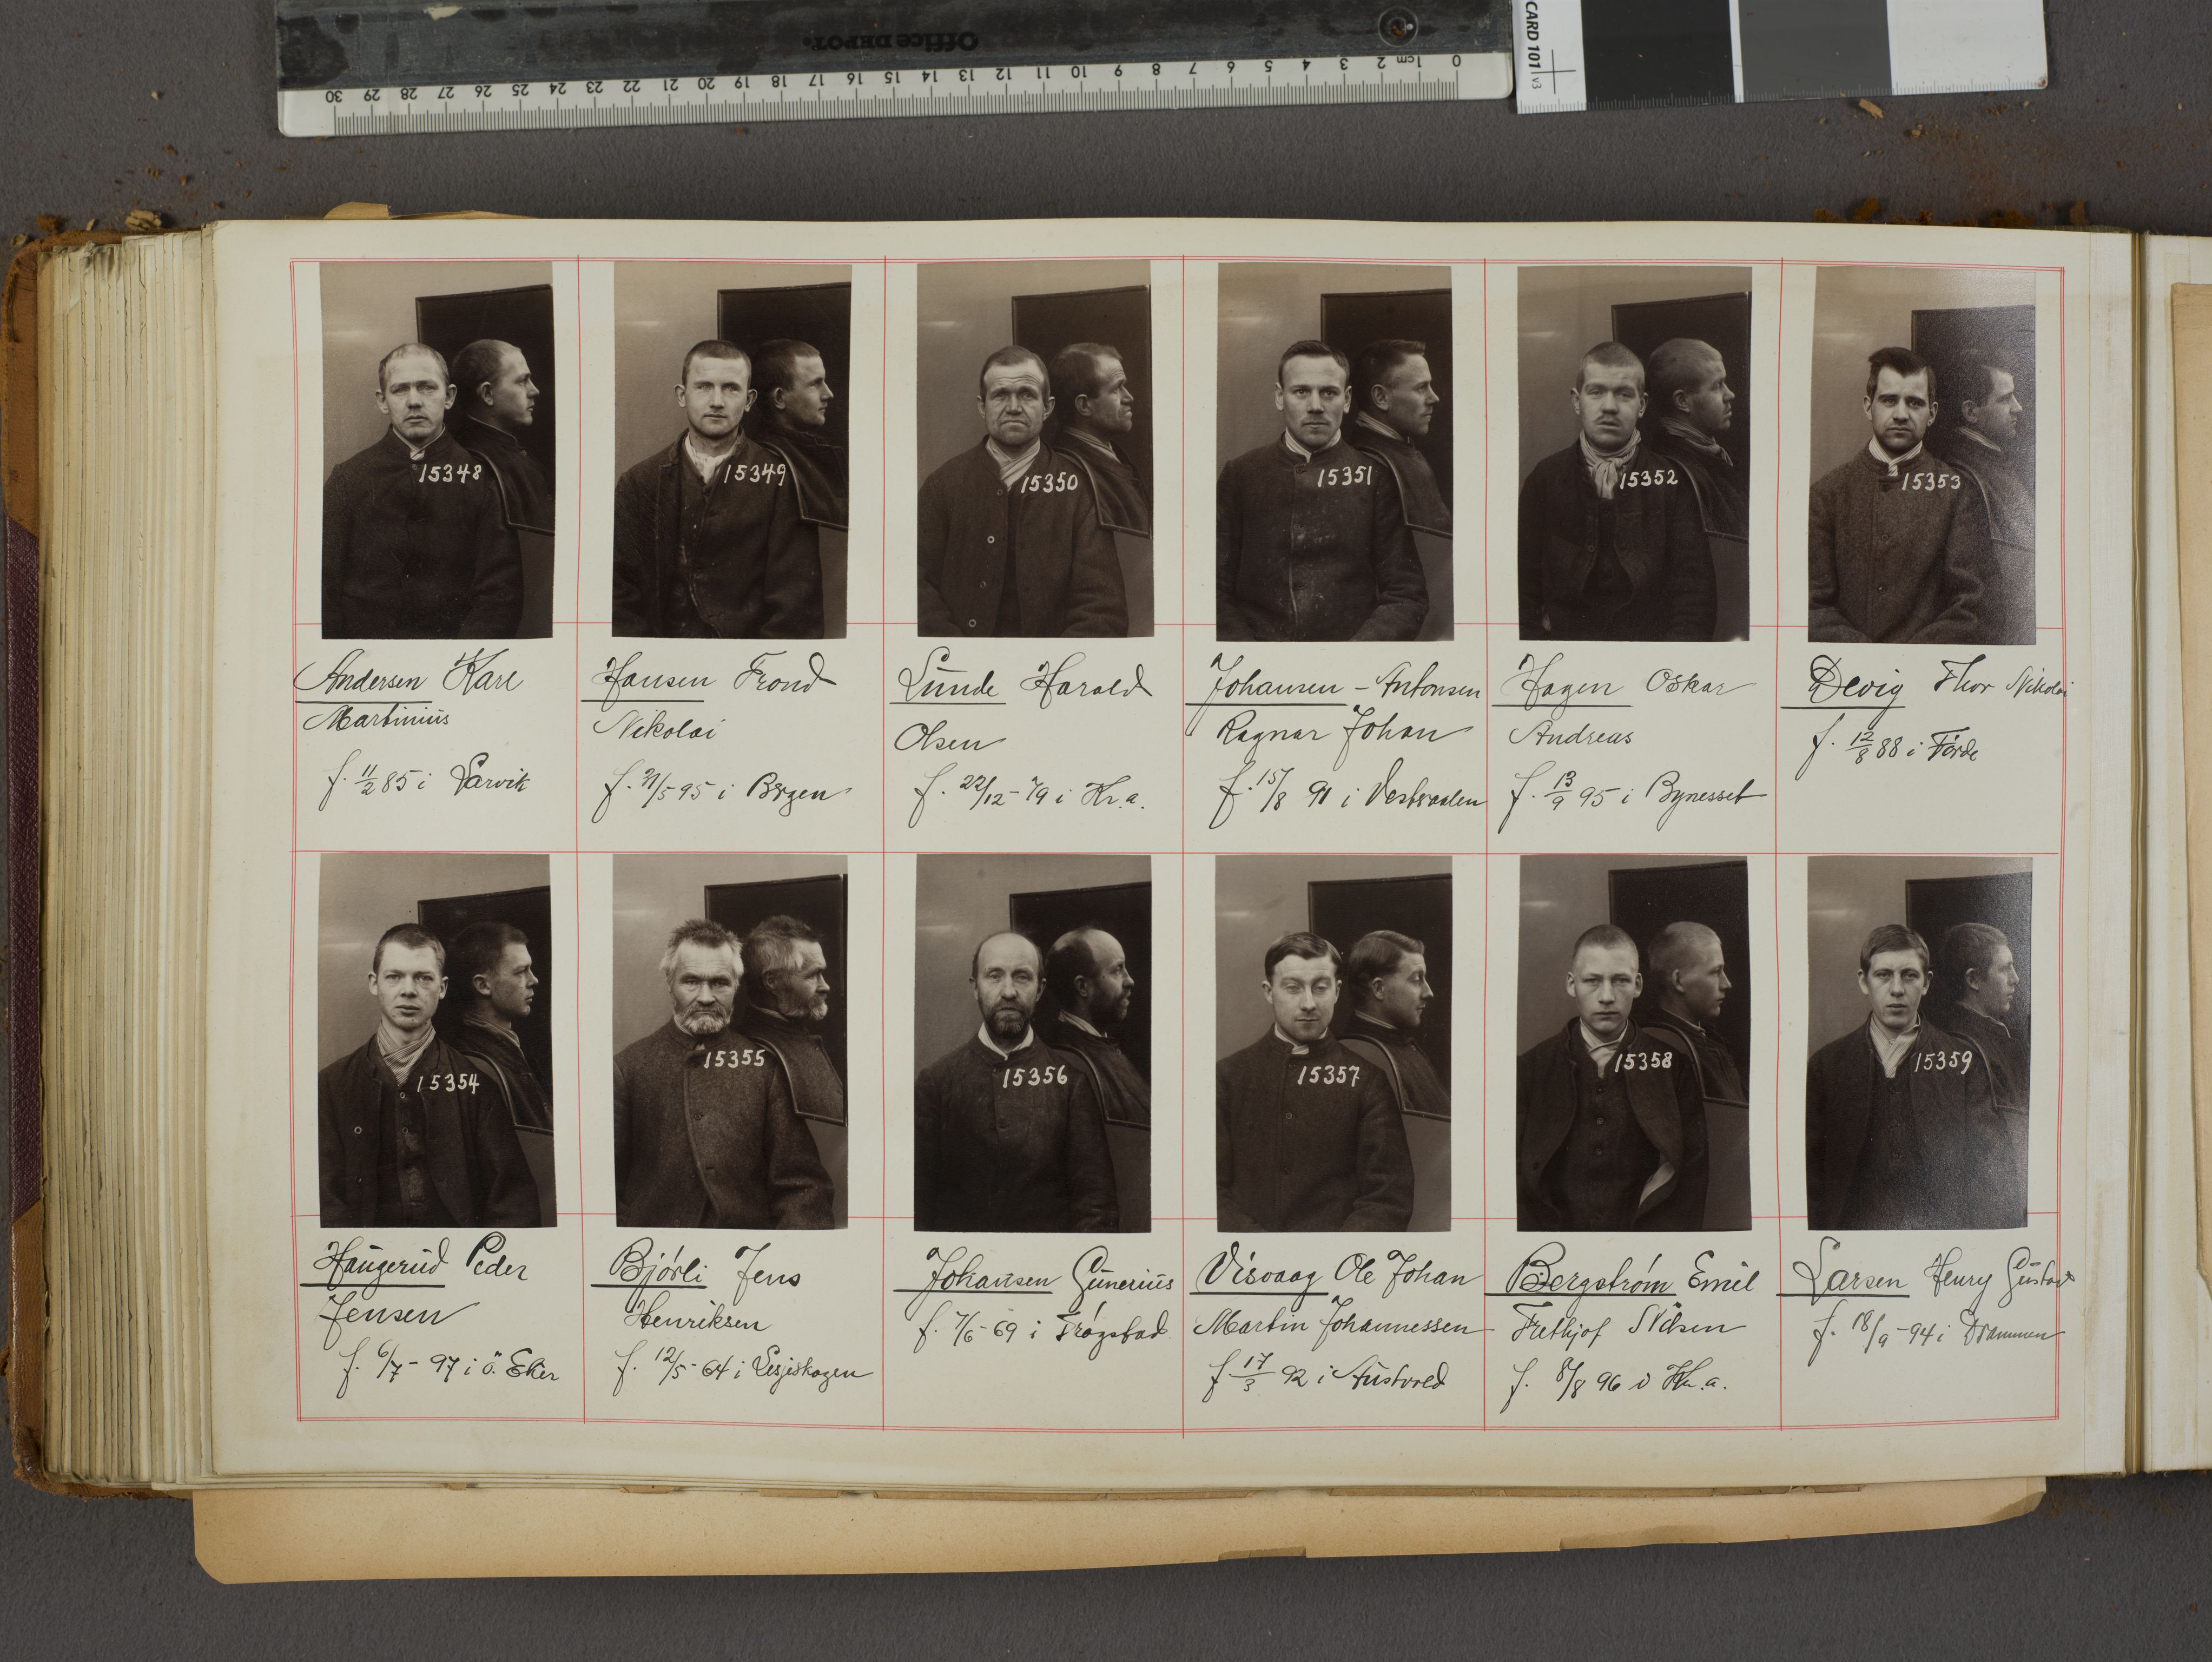 Office DEPOT.
0 1cm 2 3 4 5 6 7 8 9 10 11 12 13 14 15 16 17 18 19 20 21 22 23 24 25 26 27 28 29 30
CARD 101 v3
15348
15349
15350
15351
15352
15353
Andersen Karl
Martinius
f. 11/2 85 i Larvik
Hansen Trond
Nikolai
f. 21/5 95 i Bergen
Lunde Harald
Olsen
f. 22/12 - 79 i Kr.a.
Johansen - Antonsen
Ragnar Johan
f. 15/8 91 i Vestraalen
Hagen Oskar
Andreas
f. 13/9 95 i Bynesset
Devig Thor Nikolai
f. 12/8 88 i Førde
15354
15355
15356
15357
15358
15359
Haugerud Peder
Jensen
f. 6/7 - 97 i ö. Eker
Bjørli Jens
Henriksen
f. 12/5 - 64 i Lesjeskogen
Johansen Gunerius
f. 7/6 - 69 i Trøgstad
Visvaag Ole Johan
Martin Johannessen
f. 17/3 92 i Austvold
Bergstrøm Emil
Frithjof Nilsen
f. 8/8 96 i Kr.a.
Larsen Henry Gustav
f. 18/9 - 94 i Drammen